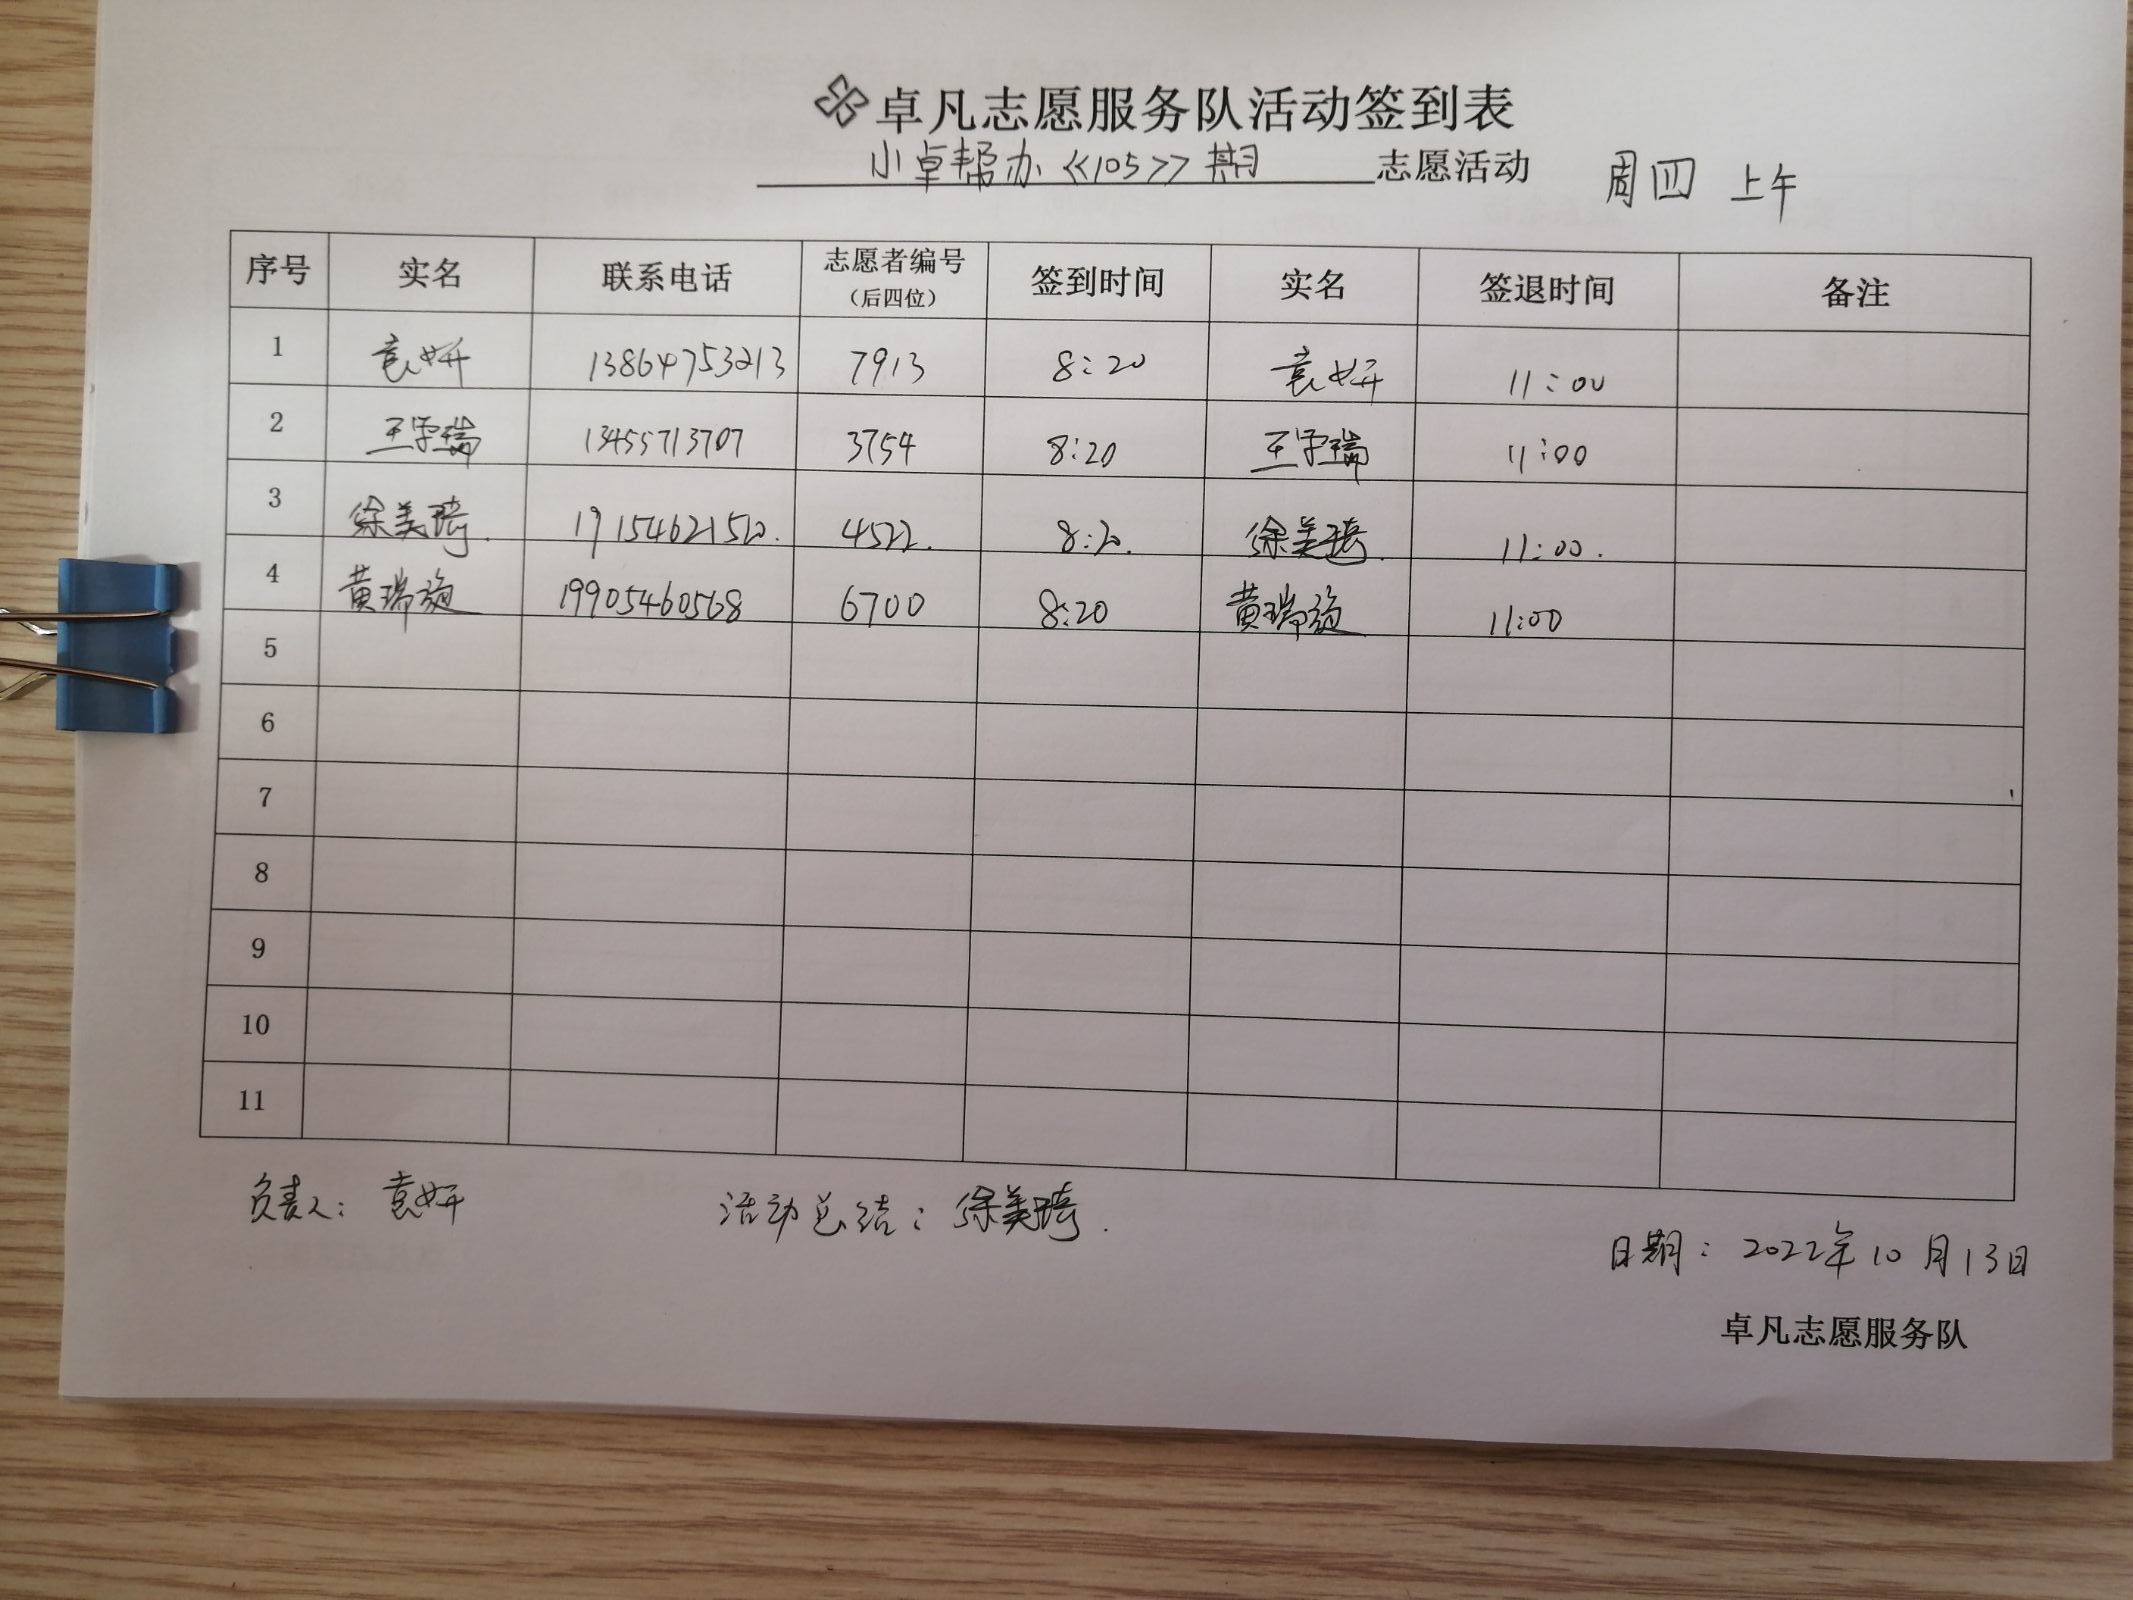 卓凡志愿服务队活动签到表
小卓帮办《105》期 志愿活动 周四 上午
序号 实名 联系电话 志愿者编号（后四位） 签到时间 实名 签退时间 备注
1 袁妍 13864753213 7913 8:20 袁妍 11:00
2 王学瑞 13455713707 3754 8:20 王学瑞 11:00
3 徐美琦. 19154621520. 4522. 8:20. 徐美琦. 11:00.
4 黄瑞旋 19905460568 6700 8:20 黄瑞旋 11:00
5
6
7
8
9
10
11
负责人: 袁妍 活动总结: 徐美琦.
日期: 2022年10月13日
卓凡志愿服务队